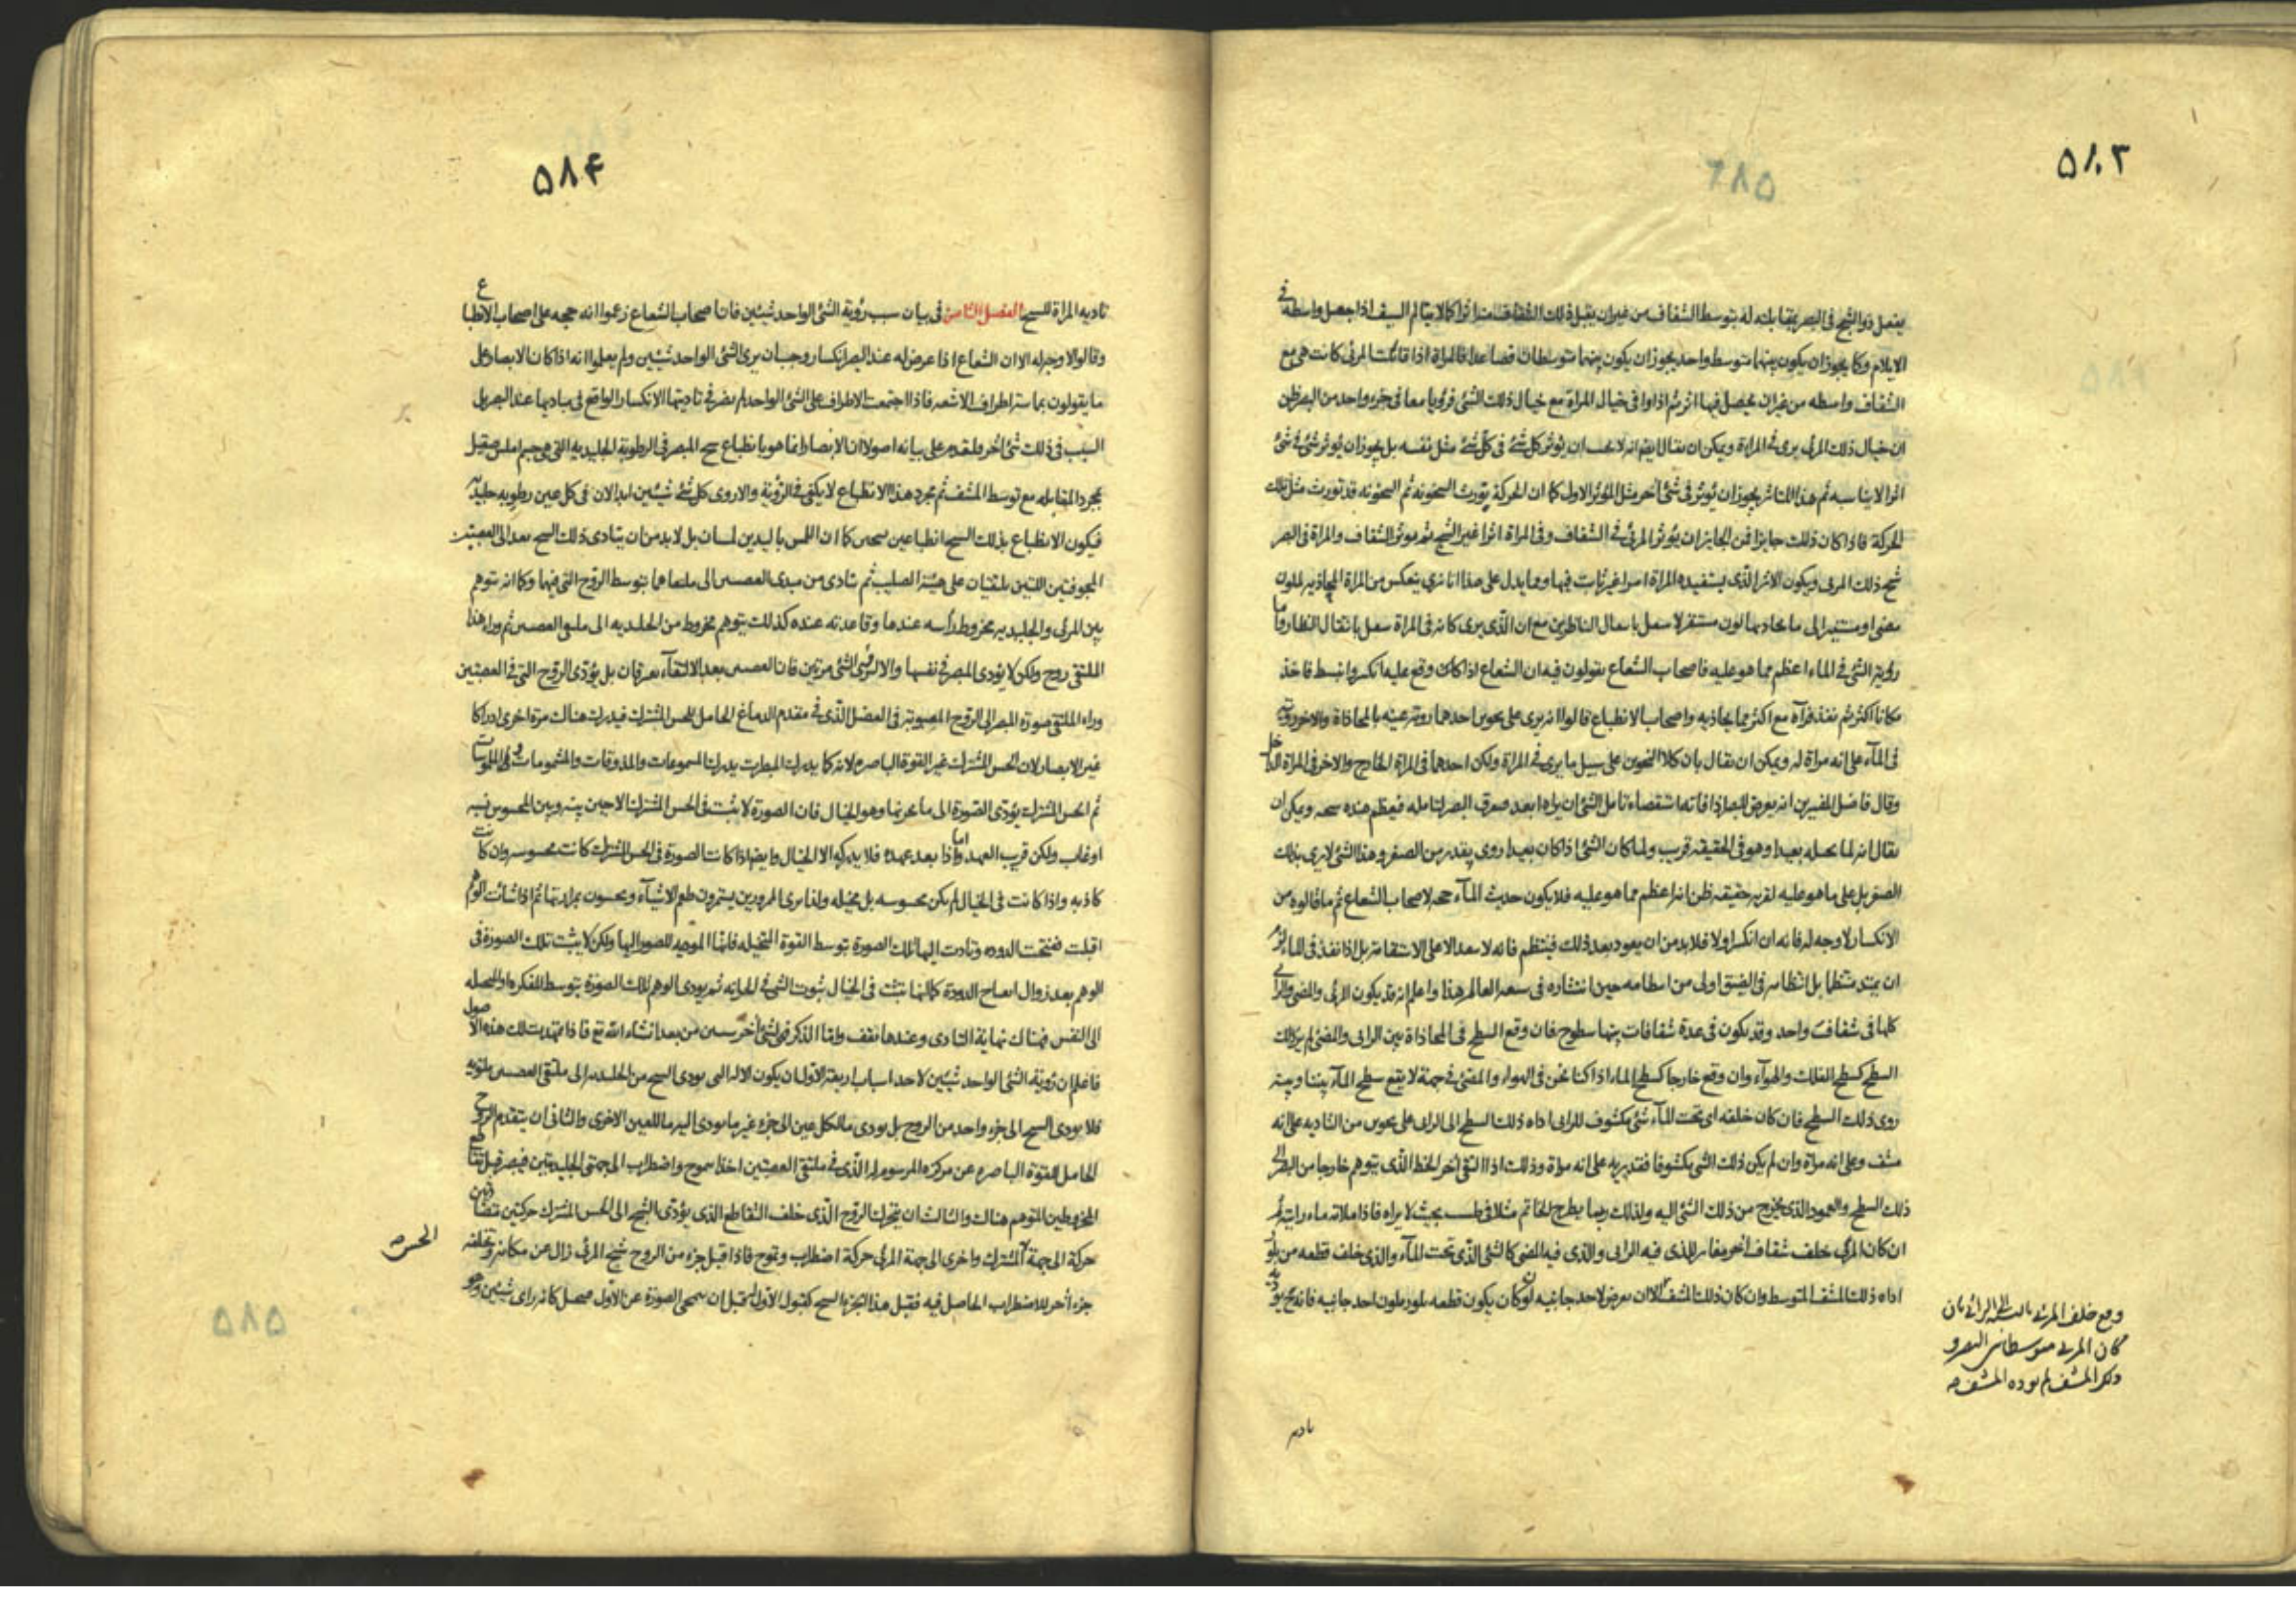 ٥٨٣
يفعل ذو الشبح في البصر بمقابلته له بتوسط الشفاف من غير ان يقبل ذلك الشفاف منه اثرا كما لا يتألم السيف اذا جعل واسطة في
الايلام وكما يجوز ان يكون بينهما متوسط واحد يجوز ان يكون بينهما متوسطات فصاعدا فالمراة اذا قابلت المرئي كانت هي مع
الشفاف واسطه من غير ان يحصل فيها اثر ثم اذا راوا في خيال المراة مع خيال ذلك الشئ فرؤيا معا في جزء واحد من البصر ظن
ان خيال ذلك المرئي يرى في المراة ويمكن ان يقال ايضا انه لا يجب ان يؤثر كل شئ في كل شئ مثل نفسه بل يجوز ان يؤثر شئ في شئ
اثرا لا يناسبه ثم هذا المتاثر يجوز ان يؤثر في شئ آخر مثل المؤثر الاول كما ان الحركة تورث السخونه ثم السخونه قد تورث مثل تلك
الحركة فاذا كان ذلك جايزا فمن الجايز ان يؤثر المرئي في الشفاف وفي المراة اثرا غير الشبح ثم يؤثر الشفاف والمراة في البصر
شبح ذلك المرئي ويكون الاثر الذي يستفيده المراة امرا غير ثابت فيها ومما يدل على هذا انا نرى ينعكس من المراة المحاذيه لملون
مضئ او مستنير الى ما يحاذيها لون مستقر لا ينتقل بانتقال الناظرين مع ان الذي يرى كانه في المراة ينتقل بانتقال النظار واما
رؤية الشئ في الماء اعظم مما هو عليه فاصحاب الشعاع يقولون فيه ان الشعاع اذا كان وقع عليه انكسر وانبسط فاخذ
مكانا اكثر ثم نفذ فرآه مع اكثر مما يحاذيه واصحاب الانطباع قالوا انه يرى على نحوين احدهما رؤية عينه بالمحاذاة والاخر رؤيته
في المآء على انه مراة له ويمكن ان يقال بان كلا النحوين على سبيل ما يرى في المراة ولكن احدهما في المراة الخارج والاخر في المراة الداخل
وقال فاضل المفسرين انه يعرض للبصر اذا فاته استقصاء تامل الشئ ان يراه ابعد صرف البصر لتامله فيعظم عنده شبحه ويمكن ان
يقال انه لما يحيله بعيدا وهو في الحقيقه قريب ولما كان الشئ اذا كان بعيدا روى بقدر من الصغر وهذا الشئ لا يرى بذلك
الصغر بل على ما هو عليه لقربه حقيقه ظن انه اعظم مما هو عليه فلا يكون حديث المآء حجه لاصحاب الشعاع ثم ما قالوه من
الانكسار لا وجه له فانه ان انكسر اولا فلا بد من ان يعود بعد ذلك فينتظم فانه لا ينفذ الا على الاستقامة بل اذا نفذ في الماء لزم
ان يمتد منتظما بل انتظامه في الضيق اولى من انتظامه حين انتشاره في سعه العالم هذا واعلم انه قد يكون المرئي والمضئ والرائي
كلها في شفاف واحد وقد يكون في عدة شفافات بينها سطوح فان وقع السطح في المحاذاة بين الرائى والمضئ لم ير ذلك
السطح كسطح الفلك والهوآء وان وقع خارجا كسطح الماء اذا كنا نحن في الهواء والمضئ في جهة لا يقع سطح المآء بيننا وبينه
روى ذلك السطح فان كان خلفه اى تحت المآء شئ مكشوف للرائى اداه ذلك السطح الى الرائى على نحوين من التاديه على انه
مشف وعلى انه مراة وان لم يكن ذلك الشئ مكشوفا فقد يريه على انه مراة وذلك اذا التقى آخر الخط الذي يتوهم خارجا من البصر الى
ذلك السطح والعمود الذي يخرج من ذلك الشئ اليه ولذلك ربما يطرح الخاتم مثلا في طست بحيث لا يراه فاذا ملاته ماء رايته ثم
ان كان المرئي خلف شفاف آخر مغاير للذى فيه الرائى والذى فيه المضئ كالشئ الذي تحت المآء والذى خلف قطعه من بلور
اداه ذلك المشف المتوسط وان كان ذلك المشف الا ان يعرض لاحد جانبيه لون كان يكون قطعه بلور ملون احد جانبيه فانه ح يؤديه
وقع خلف المرئي بالنسبة الى الرائي بان
كان المرئي متوسطا بين البصر و
ذلك المشف لم يؤده المشف صح
تاديه
٥٨۴
تاديه المراة للشبح الفصل الثامن في بيان سبب رؤية الشئ الواحد شيئين فان اصحاب الشعاع زعموا انه حجه على اصحاب الانطباع
وقالوا لا وجه له الا ان الشعاع اذا عرض له عند البصر انكسار وجب ان يرى الشئ الواحد شيئين ولم يعلموا انه اذا كان الابصار على
ما يقولون بماسة اطراف الاشعه فاذا اجتمعت الاطراف على الشئ الواحد لم يضر في تاديتها الانكسار الواقع في مباديها عند البصر بل
السبب في ذلك شئ آخر ولنقدم على بيانه اصولا ان الابصار انما هو بانطباع شبح المبصر في الرطوبة الجليديه التي هي جسم املس صقيل
بمجرد المقابله مع توسط المشف ثم مجرد هذا الانطباع لا يكفي في الرؤية والا روى كل شئ شيئين ابدا لان في كل عين رطوبه جليديه
فيكون الانطباع بذلك الشبح انطباعين شبحين كما ان اللمس باليدين لمسان بل لا بد من ان يتادى ذلك الشبح بعد الى العصبتين
المجوفتين اللتين يلتقيان على هيئة الصليب ثم تتادى من مبدئ العصبتين الى ملتقاهما بتوسط الروح التي فيهما وكما انه يتوهم
بين المرئي والجليديه مخروط راسه عندها وقاعدته عنده كذلك يتوهم مخروط من الجليديه الى ملتقى العصبتين ثم وراء هذا
الملتقى روح ولكن لا يؤدى المبصر في نفسها والا لرؤى الشئ مرتين فان العصبتين بعد الالتقآء يفترقان بل يؤدى الروح التي في العصبتين
وراء الملتقى صورة المبصر الى الروح المصبوبة في الفضل الذي في مقدم الدماغ الحامل للحس المشترك فيدرك هناك مرة اخرى ادراكا
غير الابصار لان الحس المشترك غير القوة الباصره لانه كما يدرك المبصرات يدرك المسموعات والمذوقات والمشمومات والملموسات
ثم الحس المشترك يؤدى الصورة الى ما يخزنها وهو الخيال فان الصورة لا يثبت في الحس المشترك الا حين بينه وبين المحسوس نسبه
او غاب ولكن قريب العهد واما اذا بعد عهده فلا يدركه الا الخيال وايضا اذا كانت الصورة في الحس المشترك كانت محسوسه وان كانت
كاذبه واذا كانت في الخيال لم يكن محسوسه بل مخيله ولذا يرى الممرورين يستمرون طعم الاشيآء ويحسون بمرارتها ثم اذا شآءت الوهم
اقبلت ففتحت الدوده وتادت اليها تلك الصورة بتوسط القوة المتخيله فانها الموجه للصور اليها ولكن لا يثبت تلك الصورة في
الوهم بعد زوال انفتاح الدودة كما انها تثبت في الخيال ثبوت الشئ في الخزانه ثم يؤدى الوهم تلك الصورة بتوسط المفكره او المتخيله
الى النفس فهناك نهاية التادى وعندها تقف واما الذكر فهو شئ آخر سنبين من بعد انشاء الله تع فاذا تمهدت لك هذه الاصول
فاعلم ان رؤية الشئ الواحد شيئين لاحد اسباب اربعة الاول ان يكون الاله التي يؤدى الشبح من الجليديه الى ملتقى العصبتين ملتويه
فلا يؤدى الشبح الى جزء واحد من الروح بل يؤدى ما لكل عين الى جزء غير ما يؤدى اليه ما للعين الاخرى والثاني ان يتقدم الروح
الحامل للقوة الباصره عن مركزه المرسوم له الذي في ملتقى العصبتين اخذا بتموج واضطراب الى جهتي الجليديتين فيبصر قبل تقاطع
المخروطين المتوهم هناك والثالث ان يتحرك الروح الذي خلف التقاطع الذى يؤدى الشبح الى الحس المشترك حركتين متضادتين
حركة الى جهة المشترك واخرى الى جهة المرئي حركة اضطراب وتموج فاذا قبل جزء من الروح شبح المرئي زال عن مكانه وتخلفه
جزء آخر للاضطراب الحاصل فيه فقبل هذا الجزء الشبح كقبول الاول قبل ان يمحى الصورة عن الاول فيحصل كانه راى شيئين وهو
الحس صح
٥٨٥